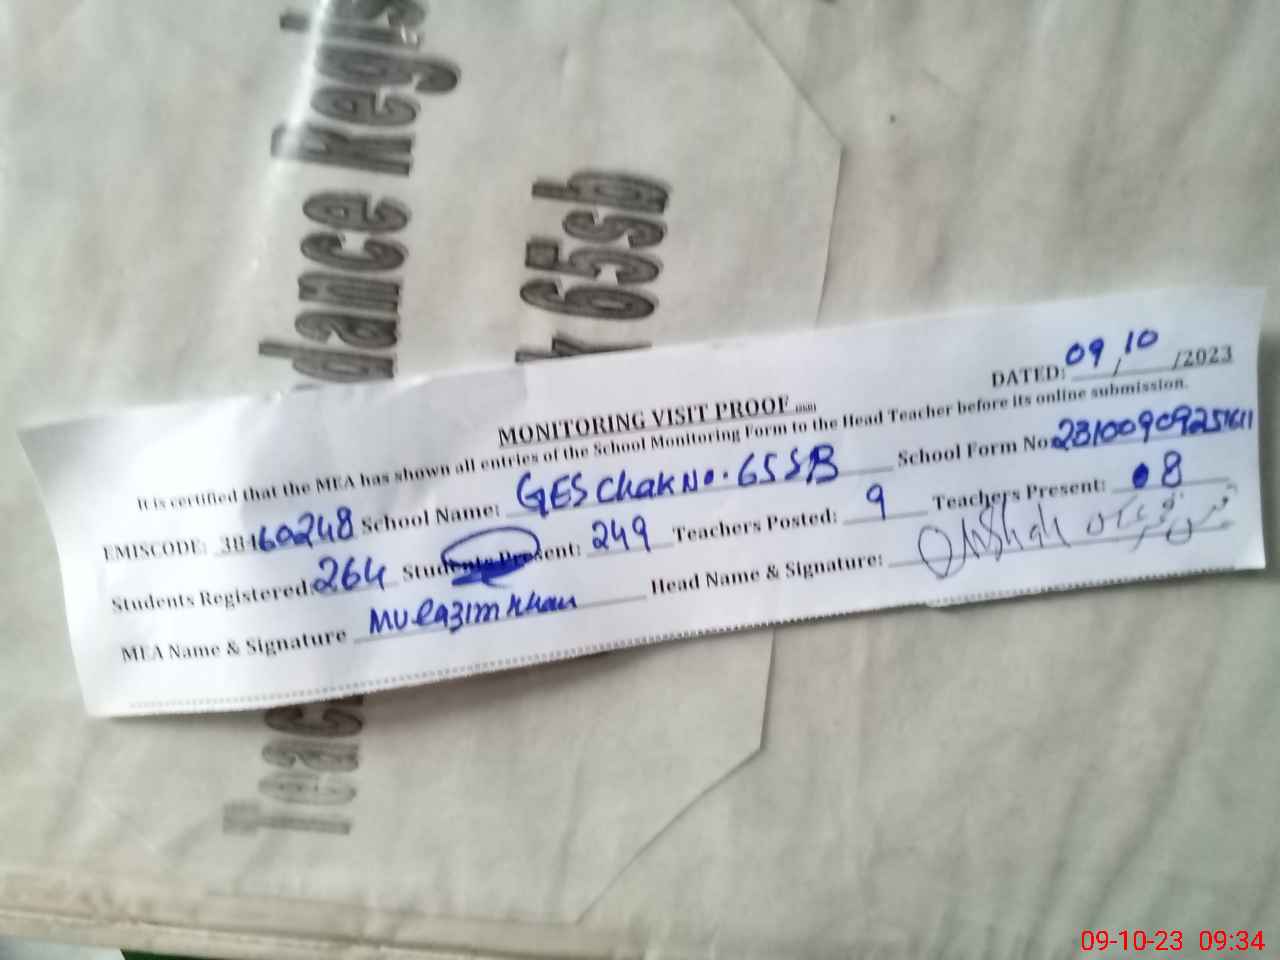 Teac
dance Regis
65sb
MONITORING VISIT PROOF
DATED: 09/10/2023
It is certified that the MEA has shown all entries of the School Monitoring Form to the Head Teacher before its online submission.
EMISCODE: 38460248 School Name: GES Chak No. 65 SB School Form No: 23100909251611
Students Registered: 264 Students Present: 249 Teachers Posted: 9 Teachers Present: 8
MEA Name & Signature Mulazim Khan Head Name & Signature:
09-10-23 09:34